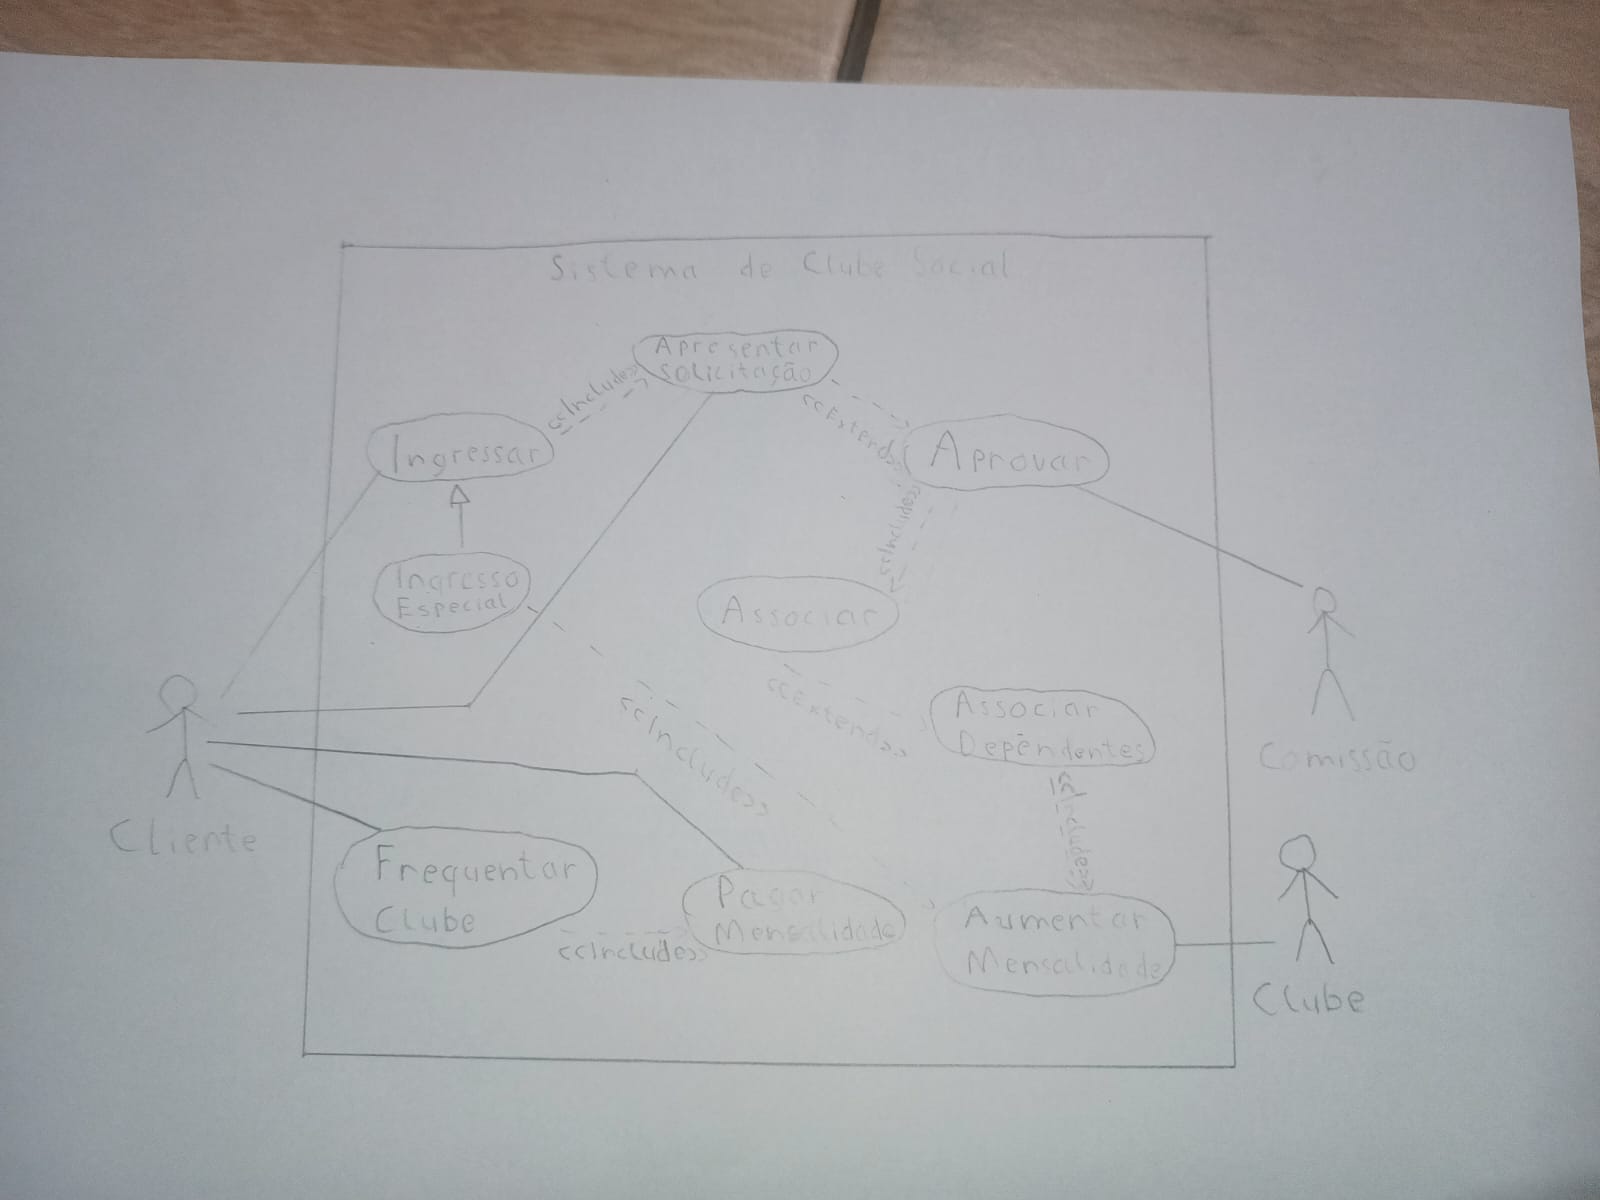 Sistema de Clube Social
Apresentar
Solicitação
<<Include>>
Ingressar
<<Extend>>
Aprovar
<<Include>>
Ingresso
Especial
Associar
<<Extend>>
Associar
Dependentes
<<Include>>
Comissão
<<Include>>
Cliente
Frequentar
Clube
<<Include>>
Pagar
Mensalidade
Aumentar
Mensalidade
Clube